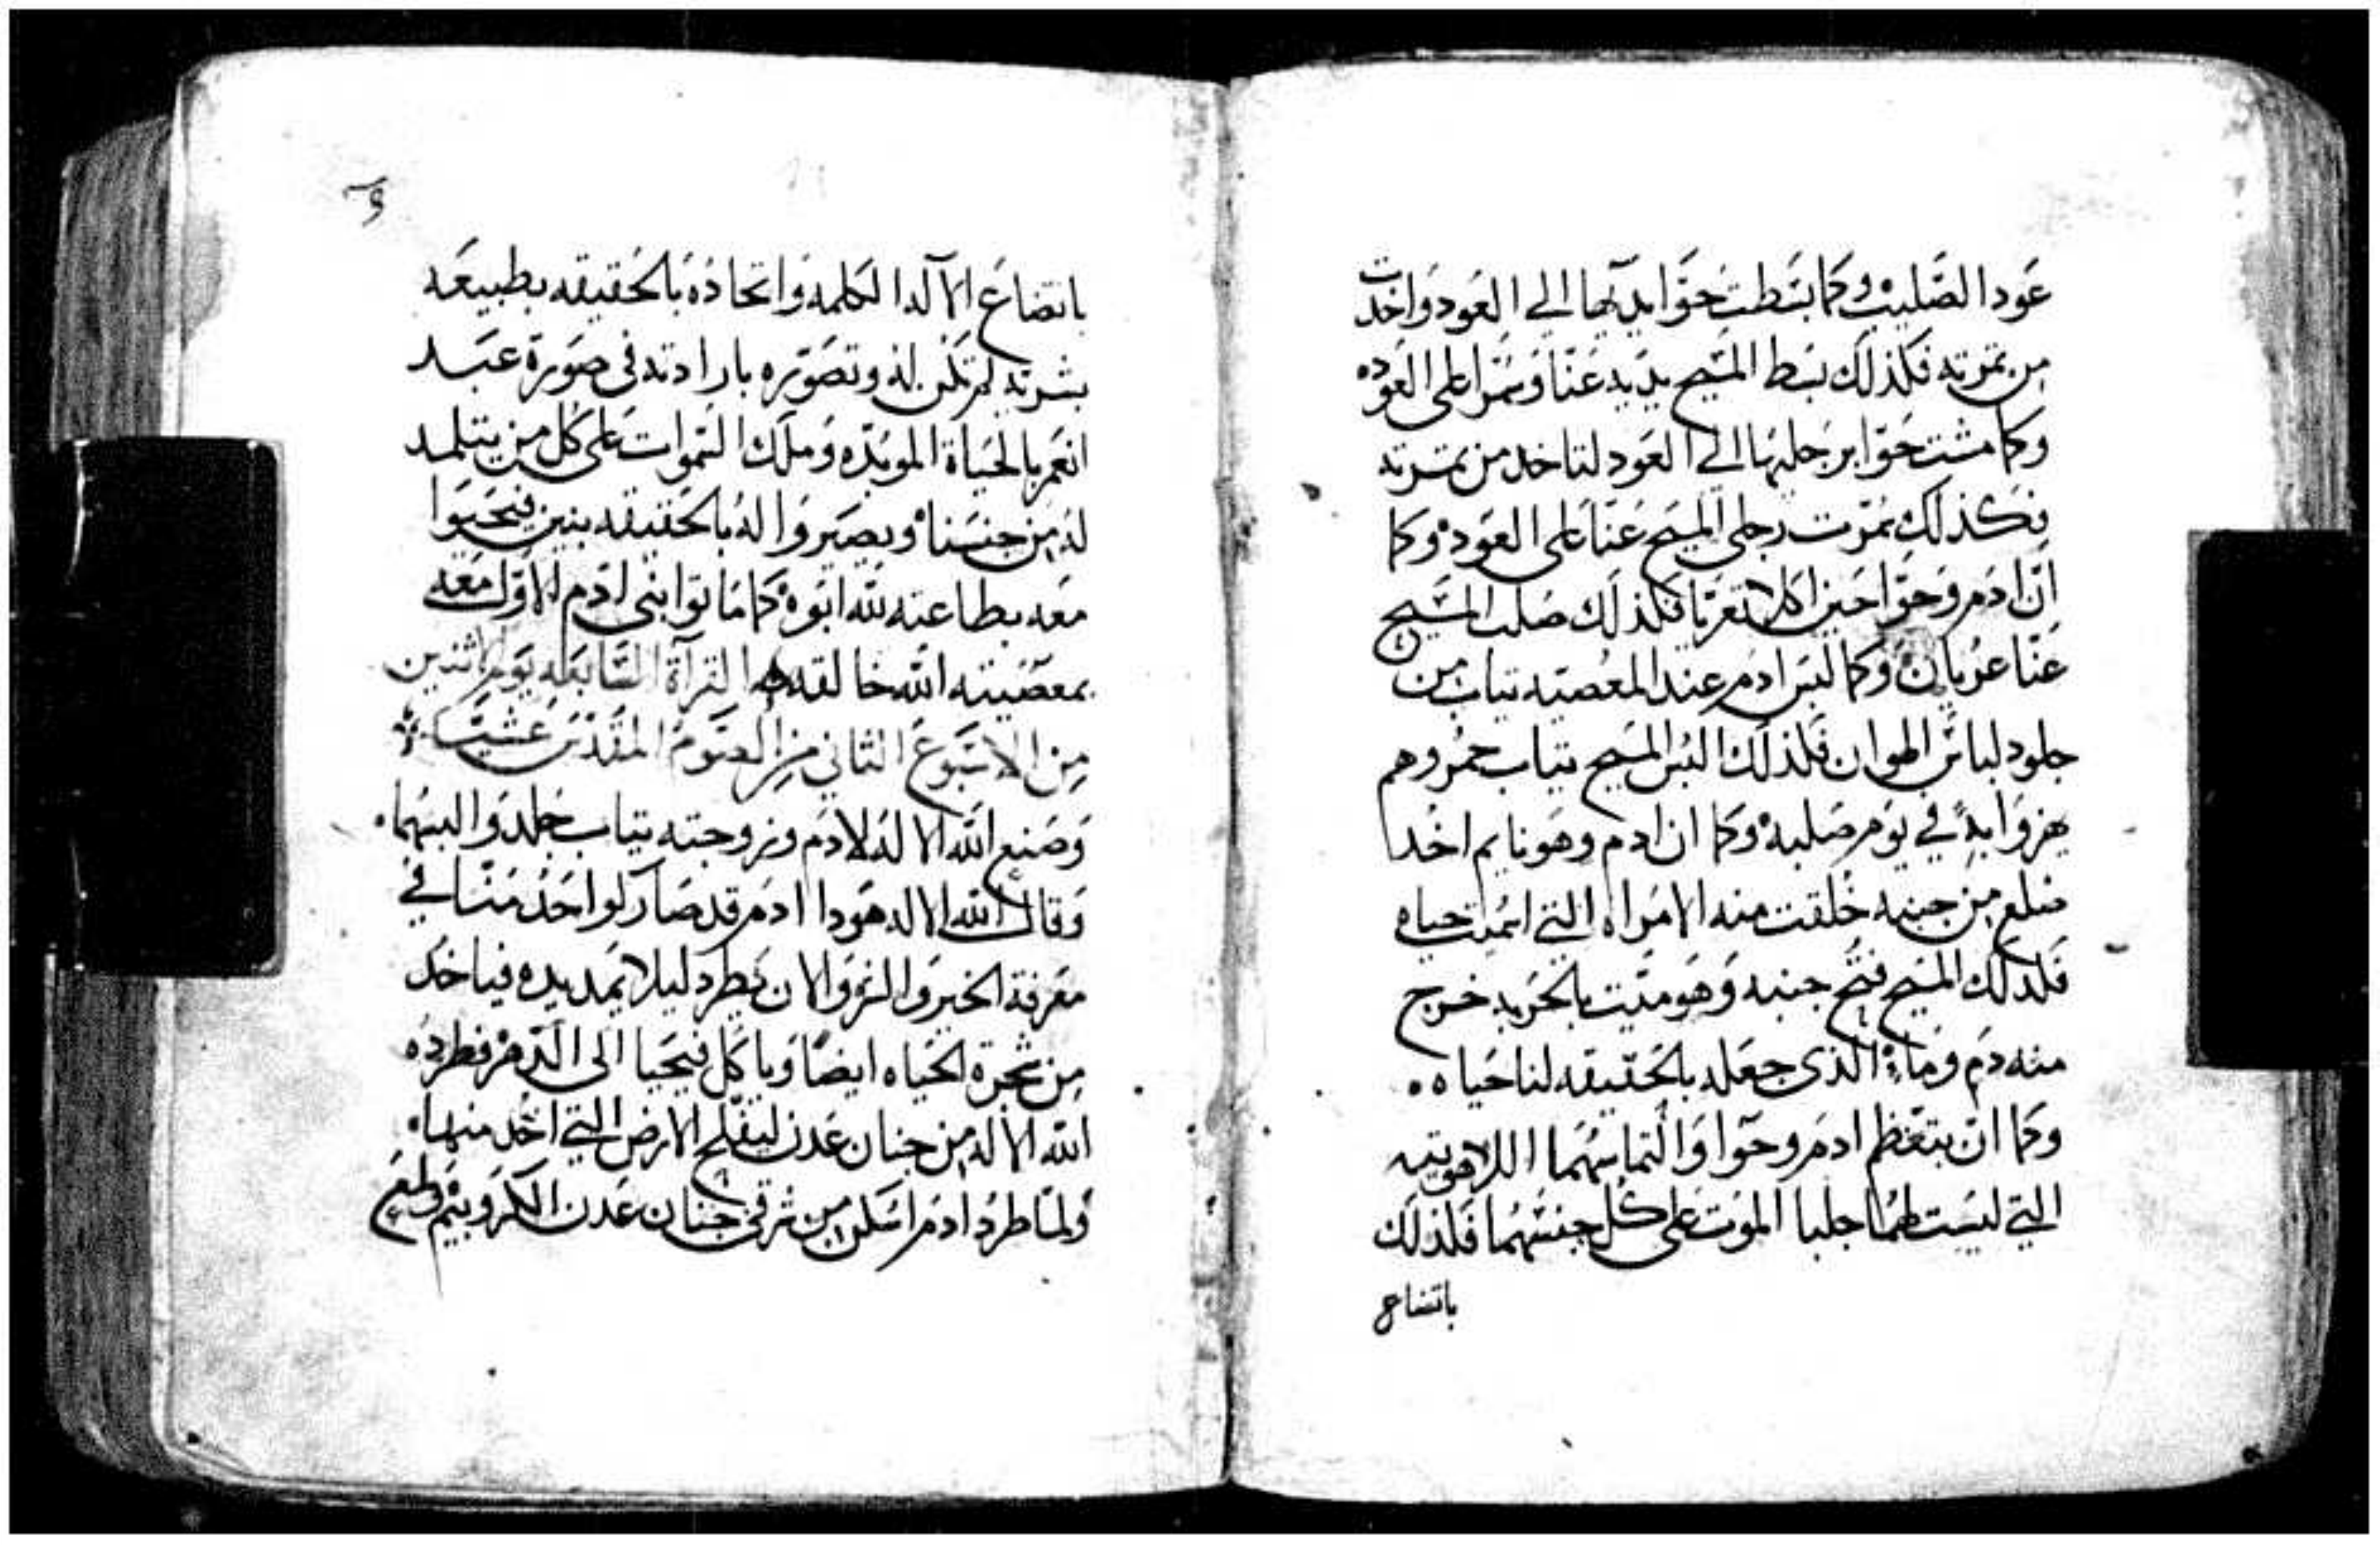 عود الصليب وكما بسطت حوا يديها الي العود واخدت
من تمرته فكذلك بسط المسيح يديه عنا وسمرا على العوده
وكما مشت حوا برجليها الي العود لتاخد من تمرته
فكذلك سمرت رجلي المسيح عنا على العود وكما
ان ادم وحوا حين اكلا تعريا فكذلك صلب المسيح
عنا عريان وكما لبس ادم عند المعصيه تياب من
جلود لباس الهوان فكذلك البس المسيح تياب حمر وهم
يهزوا به في يوم صلبه وكما ان ادم وهو نايم اخد
ضلع من جنبه خلقت منه الامراه التي اسميت حياه
فكدلك المسيح فتح جنبه وهو ميت بالحربه خرج
منه دم وماء الذي جعله بالحقيقه لنا حياه ٥
وكما ان بتعظم ادم وحوا والتماسهما اللاهوتيه
التي ليست لهما جلبا الموت على كل جنسهما فكذلك
باتضاع
باتضاع الاله الكلمه واتحاده بالحقيقه بطبيعه
بشريه لم تكن له وتصوره بارادته في صورة عبد
انعم بالحياة الموبده وملك السموات على كل من يتلمد
له من جنسنا ويصيروا له بالحقيقه بنين فيحيوا
معه بطاعته لله ابوه كما ماتوا بني ادم الاول معه
بمعصيته الله خالقه القرآة السابعه يوم الاثنين
من الاسبوع الثاني من الصوم المقدس عشية
وصنع الله الاله لادم وزوجته تياب جلد والبسهما
وقال الله الاله هودا ادم قد صار كواحد منا في
معرفة الخير والشر والان يطرد ليلا يمد يده فياخد
من شجرة الحياه ايضا وياكل فيحيا الى الدهر فطرده
الله الاله من جنان عدن ليفلح الارض التي اخد منها
ولما طرد ادم اسكن من شرقي جنان عدن الكروبيم ولهيع